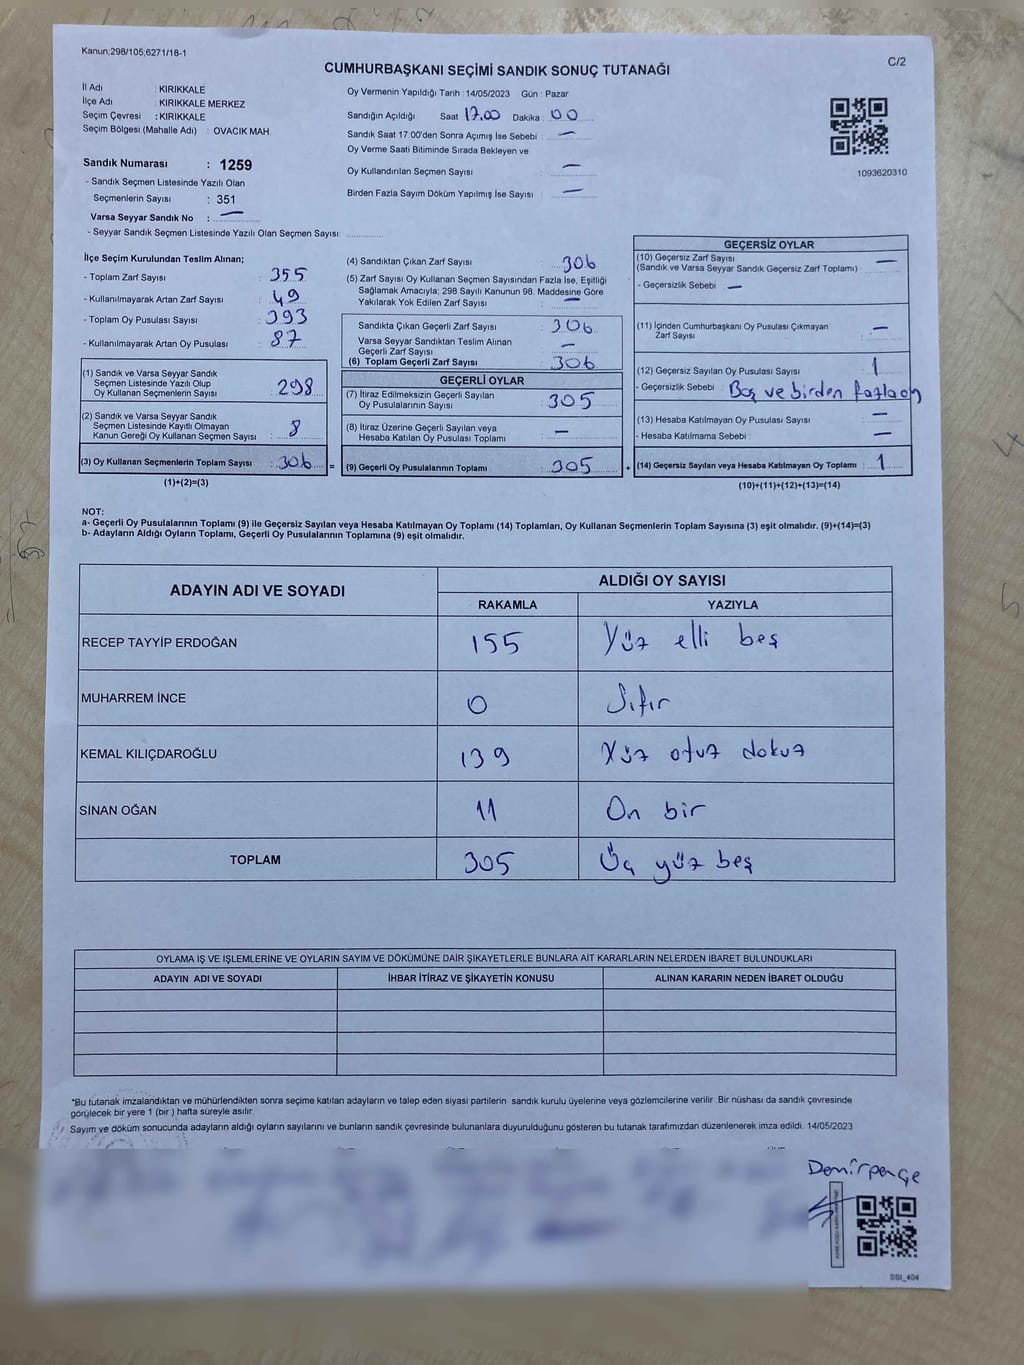 Kanun;298/105;6271/18-1
C/2
CUMHURBAŞKANI SEÇİMİ SANDIK SONUÇ TUTANAĞI
İl Adı : KIRIKKALE
İlçe Adı : KIRIKKALE MERKEZ
Seçim Çevresi : KIRIKKALE
Seçim Bölgesi (Mahalle Adı) : OVACIK MAH.
Oy Vermenin Yapıldığı Tarih :14/05/2023 Gün : Pazar
Sandığın Açıldığı Saat 17.00 Dakika : 00
Sandık Saat 17.00'den Sonra Açımış İse Sebebi : —
Oy Verme Saati Bitiminde Sırada Bekleyen ve
Oy Kullandırılan Seçmen Sayısı : —
Birden Fazla Sayım Döküm Yapılmış İse Sayısı : —
1093620310
Sandık Numarası : 1259
- Sandık Seçmen Listesinde Yazılı Olan
Seçmenlerin Sayısı : 351
Varsa Seyyar Sandık No : —
- Seyyar Sandık Seçmen Listesinde Yazılı Olan Seçmen Sayısı:
İlçe Seçim Kurulundan Teslim Alınan;
- Toplam Zarf Sayısı : 355
- Kullanılmayarak Artan Zarf Sayısı : 49
- Toplam Oy Pusulası Sayısı : 393
- Kullanılmayarak Artan Oy Pusulası : 87
(1) Sandık ve Varsa Seyyar Sandık
Seçmen Listesinde Yazılı Olup
Oy Kullanan Seçmenlerin Sayısı : 298
(2) Sandık ve Varsa Seyyar Sandık
Seçmen Listesinde Kayıtlı Olmayan
Kanun Gereği Oy Kullanan Seçmen Sayısı : 8
(3) Oy Kullanan Seçmenlerin Toplam Sayısı : 306 =
(1)+(2)=(3)
(4) Sandıktan Çıkan Zarf Sayısı : 306
(5) Zarf Sayısı Oy Kullanan Seçmen Sayısından Fazla İse, Eşitliği
Sağlamak Amacıyla; 298 Sayılı Kanunun 98. Maddesine Göre
Yakılarak Yok Edilen Zarf Sayısı : —
Sandıkta Çıkan Geçerli Zarf Sayısı : 306
Varsa Seyyar Sandıktan Teslim Alınan
Geçerli Zarf Sayısı : —
(6) Toplam Geçerli Zarf Sayısı : 306
GEÇERLİ OYLAR
(7) İtiraz Edilmeksizin Geçerli Sayılan
Oy Pusulalarının Sayısı : 305
(8) İtiraz Üzerine Geçerli Sayılan veya
Hesaba Katılan Oy Pusulası Toplamı : —
(9) Geçerli Oy Pusulalarının Toplamı : 305 +
GEÇERSİZ OYLAR
(10) Geçersiz Zarf Sayısı
(Sandık ve Varsa Seyyar Sandık Geçersiz Zarf Toplamı) : —
- Geçersizlik Sebebi : —
(11) İçinden Cumhurbaşkanı Oy Pusulası Çıkmayan
Zarf Sayısı : —
(12) Geçersiz Sayılan Oy Pusulası Sayısı : 1
- Geçersizlik Sebebi : Boş ve birden fazla oy
(13) Hesaba Katılmayan Oy Pusulası Sayısı : —
- Hesaba Katılmama Sebebi : —
(14) Geçersiz Sayılan veya Hesaba Katılmayan Oy Toplamı : 1
(10)+(11)+(12)+(13)=(14)
NOT:
a- Geçerli Oy Pusulalarının Toplamı (9) ile Geçersiz Sayılan veya Hesaba Katılmayan Oy Toplamı (14) Toplamları, Oy Kullanan Seçmenlerin Toplam Sayısına (3) eşit olmalıdır. (9)+(14)=(3)
b- Adayların Aldığı Oyların Toplamı, Geçerli Oy Pusulalarının Toplamına (9) eşit olmalıdır.
ADAYIN ADI VE SOYADI
ALDIĞI OY SAYISI
RAKAMLA YAZIYLA
RECEP TAYYİP ERDOĞAN 155 Yüz elli beş
MUHARREM İNCE 0 Sıfır
KEMAL KILIÇDAROĞLU 139 Yüz otuz dokuz
SİNAN OĞAN 11 On bir
TOPLAM 305 Üç yüz beş
OYLAMA İŞ VE İŞLEMLERİNE VE OYLARIN SAYIM VE DÖKÜMÜNE DAİR ŞİKAYETLERLE BUNLARA AİT KARARLARIN NELERDEN İBARET BULUNDUKLARI
ADAYIN ADI VE SOYADI İHBAR İTİRAZ VE ŞİKAYETİN KONUSU ALINAN KARARIN NEDEN İBARET OLDUĞU
*Bu tutanak imzalandıktan ve mühürlendikten sonra seçime katılan adayların ve talep eden siyasi partilerin sandık kurulu üyelerine veya gözlemcilerine verilir. Bir nüshası da sandık çevresinde
görülecek bir yere 1 (bir ) hafta süreyle asılır.
Sayım ve döküm sonucunda adayların aldığı oyların sayılarını ve bunların sandık çevresinde bulunanlara duyurulduğunu gösteren bu tutanak tarafımızdan düzenlenerek imza edildi. 14/05/2023
Demirpençe